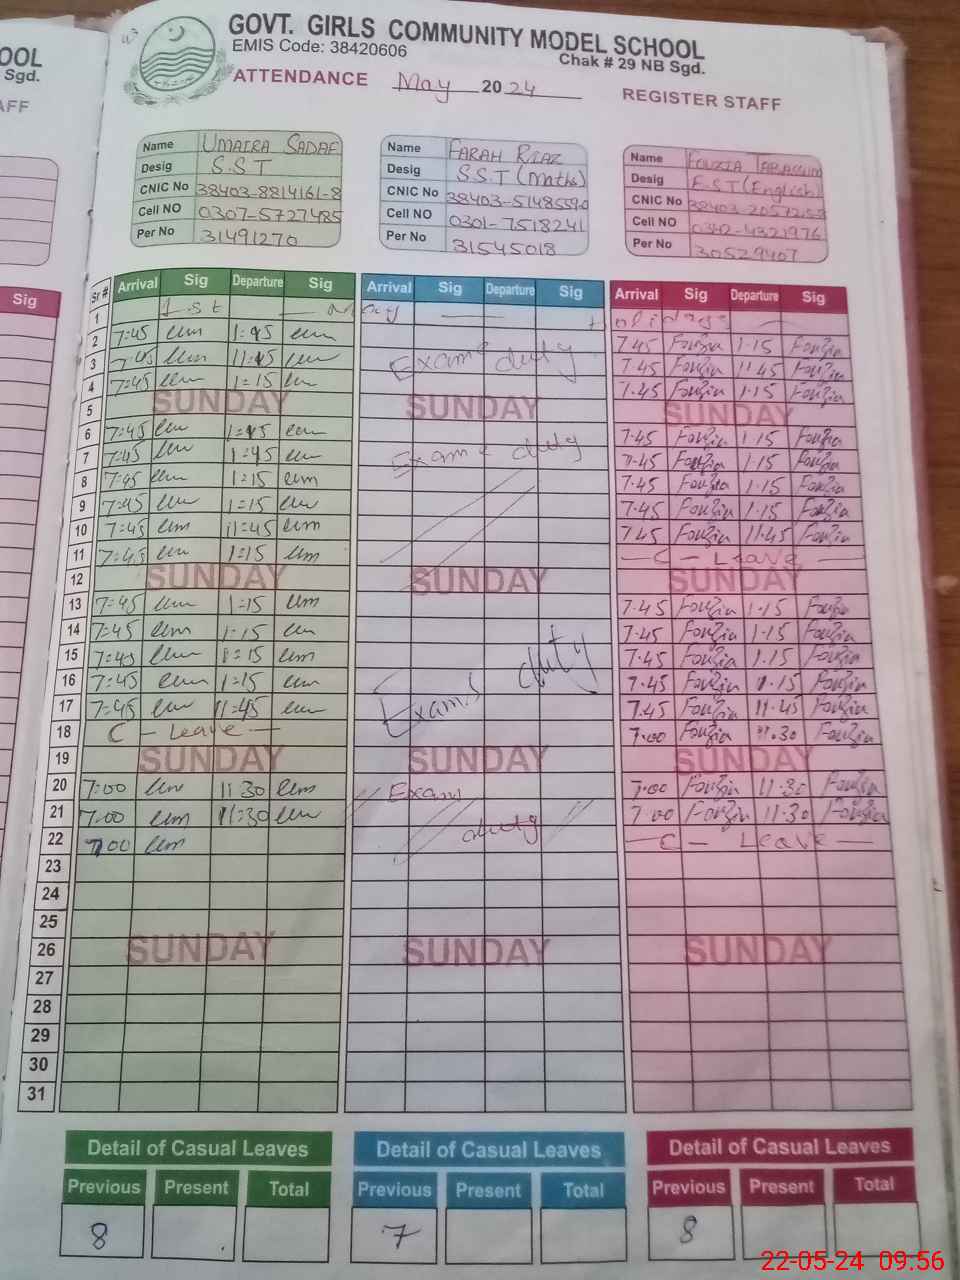 OOL
Sgd.
AFF
Sig
GOVT. GIRLS COMMUNITY MODEL SCHOOL
EMIS Code: 38420606
Chak # 29 NB Sgd.
ATTENDANCE May 2024
REGISTER STAFF
Name UMAIRA SADAF
Desig S.S.T
CNIC No 38403-8814161-8
Cell NO 0307-5727485
Per No 31491270
Name FARAH RIAZ
Desig S.S.T (Maths)
CNIC No 38403-5148559-0
Cell NO 0301-7518241
Per No 31545018
Name FOUZIA TARANUM
Desig E.S.T (English)
CNIC No 38403-2057215
Cell NO 0302-4321976
Per No 30529407
Sr # Arrival Sig Departure Sig Arrival Sig Departure Sig Arrival Sig Departure Sig
1 1st — May — Holidays —
2 7:45 1:15 7.45 Fouzia 1.15 Fouzia
3 7:45 11:45 Exams duty 7.45 Fouzia 11.45 Fouzia
4 7:45 1:15 7.45 Fouzia 1.15 Fouzia
5 SUNDAY SUNDAY SUNDAY
6 7:45 1:15 7.45 Fouzia 1.15 Fouzia
7 7:45 1:15 Exams duty 7.45 Fouzia 1.15 Fouzia
8 7:45 1:15 7.45 Fouzia 1.15 Fouzia
9 7:45 1:15 7.45 Fouzia 1.15 Fouzia
10 7:45 11:45 7.45 Fouzia 11.45 Fouzia
11 7:45 1:15 — C - Leave —
12 SUNDAY SUNDAY SUNDAY
13 7:45 1:15 7.45 Fouzia 1.15 Fouzia
14 7:45 1:15 7.45 Fouzia 1.15 Fouzia
15 7:45 1:15 7.45 Fouzia 1.15 Fouzia
16 7:45 1:15 Exams duty 7.45 Fouzia 1.15 Fouzia
17 7:45 11:45 7.45 Fouzia 11.45 Fouzia
18 C - Leave — 7.00 Fouzia 11.30 Fouzia
19 SUNDAY SUNDAY SUNDAY
20 7:00 11:30 Exam 7.00 Fouzia 11.30 Fouzia
21 7:00 11:30 duty 7.00 Fouzia 11.30 Fouzia
22 7:00 — C - Leave —
23
24
25
26 SUNDAY SUNDAY SUNDAY
27
28
29
30
31
Detail of Casual Leaves Detail of Casual Leaves Detail of Casual Leaves
Previous Present Total Previous Present Total Previous Present Total
8 7 8
22-05-24 09.56